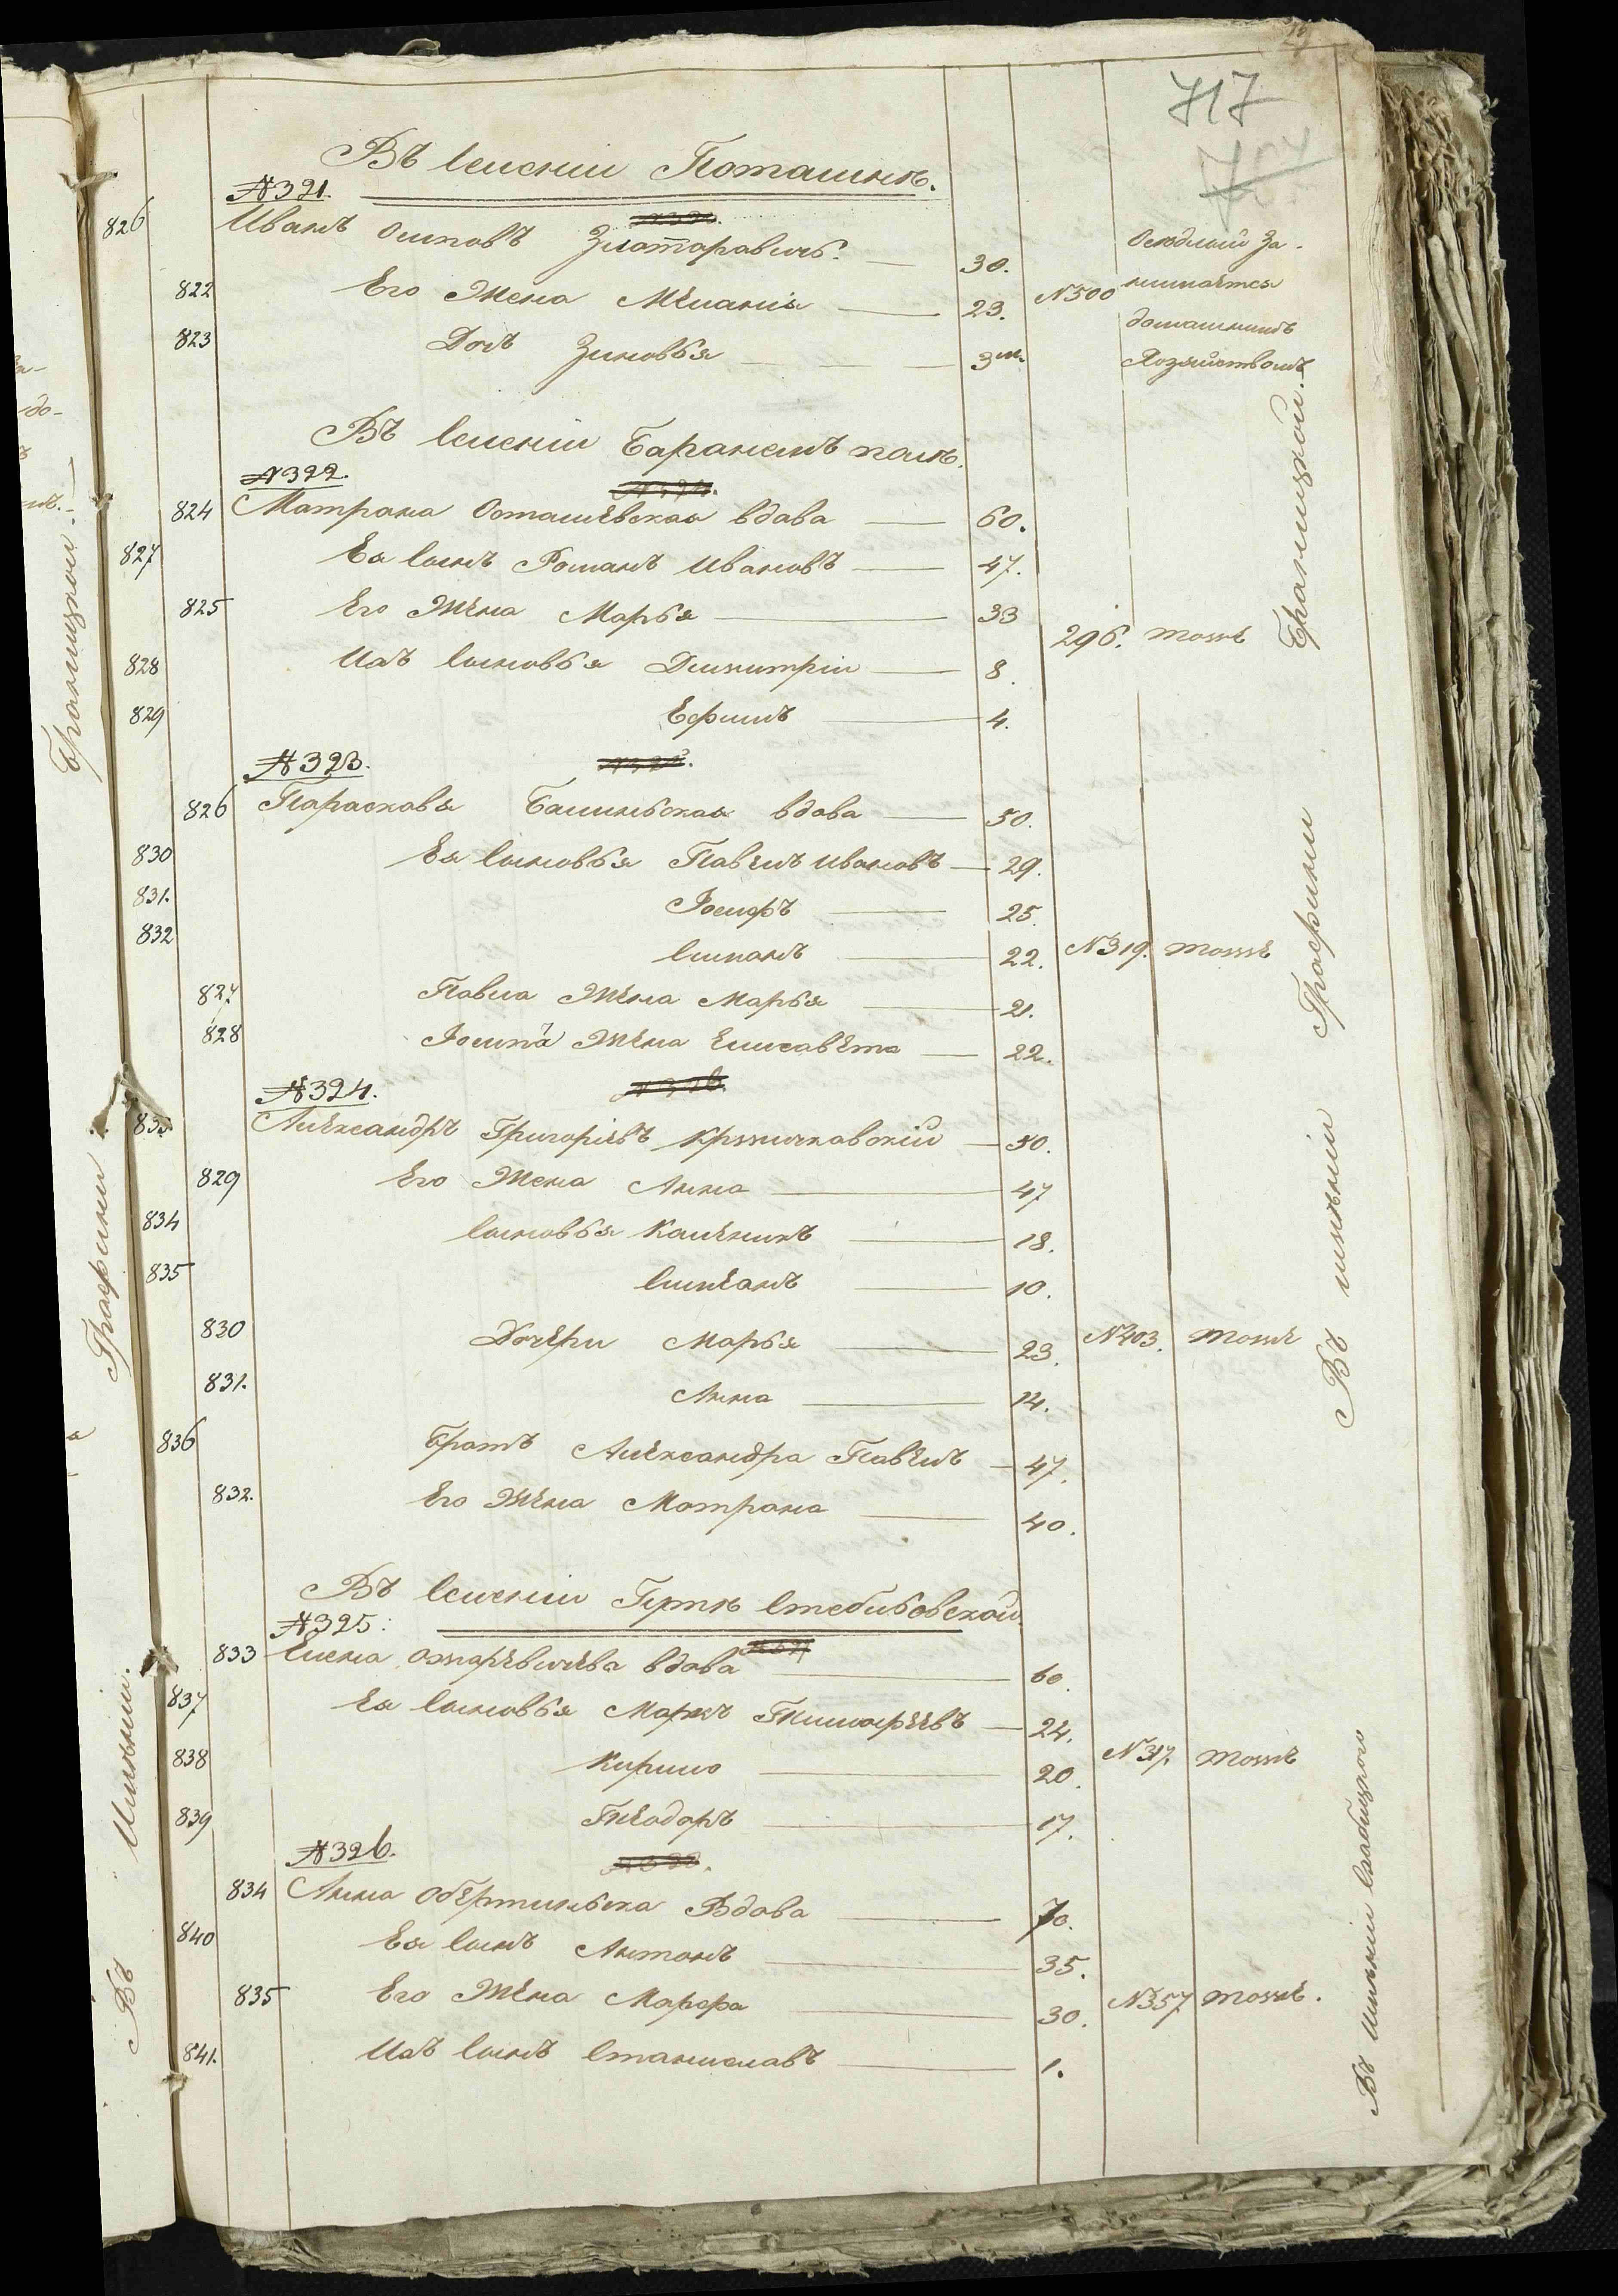 717
Въ селеніи Поташнѣ.
№321.
826 Иванъ Осиповъ Златоравичь. — 30. Оседлый За-
822 Его Жена Меланія — 23. №500 нимается
823 Дочь Зиновья — 3 м. домашнимъ
Хозяйствомъ
Въ селеніи Баранемъ полѣ.
№322.
824 Матрана Осташевская вдава — 60.
827 Ея Сынъ Романъ Ивановъ — 47.
825 Его Жена Марья — 33
296. тоже
828 Ихъ Сыновья Димитрій — 8.
829 Ефимъ — 4.
№323.
826 Парасковя вдава — 50.
830 Ея Сыновья Павелъ Ивановъ — 29.
831. Іосифъ — 25.
832 Степанъ — 22. №319. тоже
827 Павла Жена Марья — 21.
828 Іосипа Жена Елисавета — 22.
№324.
833 Александръ Григоріевъ — 50.
829 Его Жена Анна — 47
834 Сыновья Каленикъ — 18.
835 — 10.
830 Дочери Марья — 23. №403. тоже
831. Анна — 14.
836 Братъ Александра Павелъ — 47.
832. Его Жена Матрана — 40.
Въ селеніи Гутѣ Стеблевской
№325:
833 Елена вдава — 60.
837 Ея Сыновья Марко Тимофеевъ — 24.
838 Кирило — 20. №317. тоже
839 Теодоръ — 17.
№326.
834 Анна Обертиньска Вдава — 70.
840 Ея Сынъ Антонъ — 35.
835 Его Жена Марфа — 30. №357 тоже.
841. Ихъ Сынъ Станиславъ — 1.
Въ имѣніи Графини Браницкой.
Въ имѣніи
Въ Имѣніи Графини Браницкой.